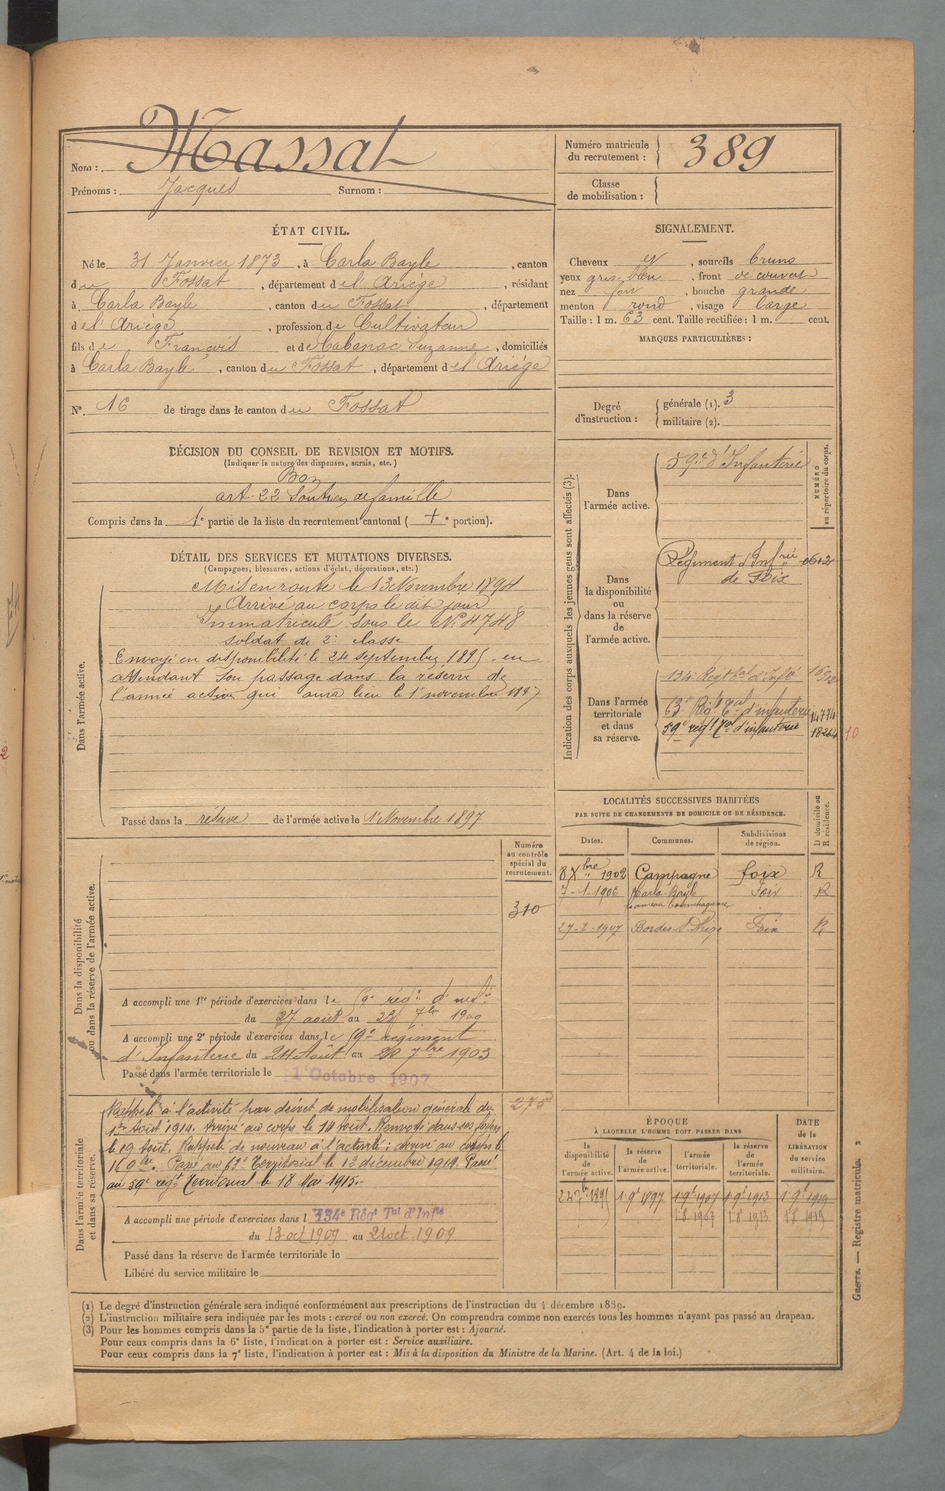 Nom : Massat
Prénoms : Jacques Surnom :
Numéro matricule du recrutement : 389
Classe de mobilisation :
ÉTAT CIVIL.
Né le 31 Janvier 1873, à Carla Bayle, canton
du Fossat, département de l'Ariège, résidant
à Carla Bayle, canton du Fossat, département
de l'Ariège, profession de Cultivateur
fils de François et de Cabanac Suzanne, domiciliés
à Carla Bayle, canton du Fossat, département de l'Ariège
N° 16 de tirage dans le canton du Fossat
SIGNALEMENT.
Cheveux N, sourcils bruns
yeux gris bleu, front découvert
nez fort, bouche grande
menton rond, visage large
Taille : 1 m. 63 cent. Taille rectifiée : 1 m. cent.
MARQUES PARTICULIÈRES :
Degré d'instruction : générale (1). 3
militaire (2).
DÉCISION DU CONSEIL DE REVISION ET MOTIFS.
(Indiquer la nature des dispenses, sursis, etc.)
Bon
art. 22 Soutien de famille
Compris dans la 1e partie de la liste du recrutement cantonal ( + e portion).
DÉTAIL DES SERVICES ET MUTATIONS DIVERSES.
(Campagnes, blessures, actions d'éclat, décorations, etc.)
Dans l'armée active.
Mis en route le 13 Novembre 1894
Arrivé au corps le dit jour
Immatriculé sous le N° 4748
soldat de 2e classe
Envoyé en disponibilité le 24 septembre 1895 en
attendant son passage dans la réserve de
l'armée active qui aura lieu le 1er novembre 1897
Passé dans la réserve de l'armée active le 1 Novembre 1897
Indication des corps auxquels les jeunes gens sont affectés (3).
NUMÉRO au répertoire du corps.
Dans l'armée active.
59e d'Infanterie
Dans la disponibilité ou dans la réserve de l'armée active.
Régiment d'Infrie
de Foix
Dans l'armée territoriale et dans sa réserve.
134e Régt tal d'Infie
63e Rég. Tal d'infanterie
59e régt Tal d'infanterie
10
LOCALITÉS SUCCESSIVES HABITÉES
PAR SUITE DE CHANGEMENTS DE DOMICILE OU DE RÉSIDENCE.
D domicile ou R résidence.
Dates. Communes. Subdivisions de région.
8 Xbre 1902 Campagne Foix R
7-1-1906 Carla-Bayle Foix R
27-2-1907 Bordes s/ Arize Foix R
Numéro au contrôle spécial du recrutement.
310
Dans la disponibilité ou dans la réserve de l'armée active.
A accompli une 1re période d'exercices dans le 59e régt d'infie
du 27 août au 23 7bre 1900
A accompli une 2e période d'exercices dans le 59e régiment
d'Infanterie du 24 Août au 20 7bre 1903
Passé dans l'armée territoriale le 1 Octobre 1907
275
Dans l'armée territoriale et dans sa réserve.
Rappelé à l'activité par décret de mobilisation générale du
1er Août 1914. Arrivé au corps le 14 Août. Renvoyé dans ses foyers
le 19 Août. Rappelé de nouveau à l'activité ; arrivé au corps le
16 8bre. Passé au 63e Territorial le 13 décembre 1914. Passé
au 59e régt Territorial le 18 Mai 1915.
A accompli une période d'exercices dans l 134e Régt Tal d'Infie
du 13 oct 1909 au 21 oct. 1909
Passé dans la réserve de l'armée territoriale le
Libéré du service militaire le
ÉPOQUE
À LAQUELLE L'HOMME DOIT PASSER DANS
DATE de la LIBÉRATION du service militaire.
la disponibilité de l'armée active. la réserve de l'armée active. l'armée territoriale. la réserve de l'armée territoriale.
24 7bre 1895 1 9bre 1897 1 9bre 1907 1 9bre 1913 1 9bre 1919
1.8 1907 1.8 1913 1.8 1919
(1) Le degré d'instruction générale sera indiqué conformément aux prescriptions de l'instruction du 4 décembre 1889.
(2) L'instruction militaire sera indiquée par les mots : exercé ou non exercé. On comprendra comme non exercés tous les hommes n'ayant pas passé au drapeau.
(3) Pour les hommes compris dans la 5e partie de la liste, l'indication à porter est : Ajourné.
Pour ceux compris dans la 6e liste, l'indication à porter est : Service auxiliaire.
Pour ceux compris dans la 7e liste, l'indication à porter est : Mis à la disposition du Ministre de la Marine. (Art. 4 de la loi.)
Guerre. — Registre matricule. 2